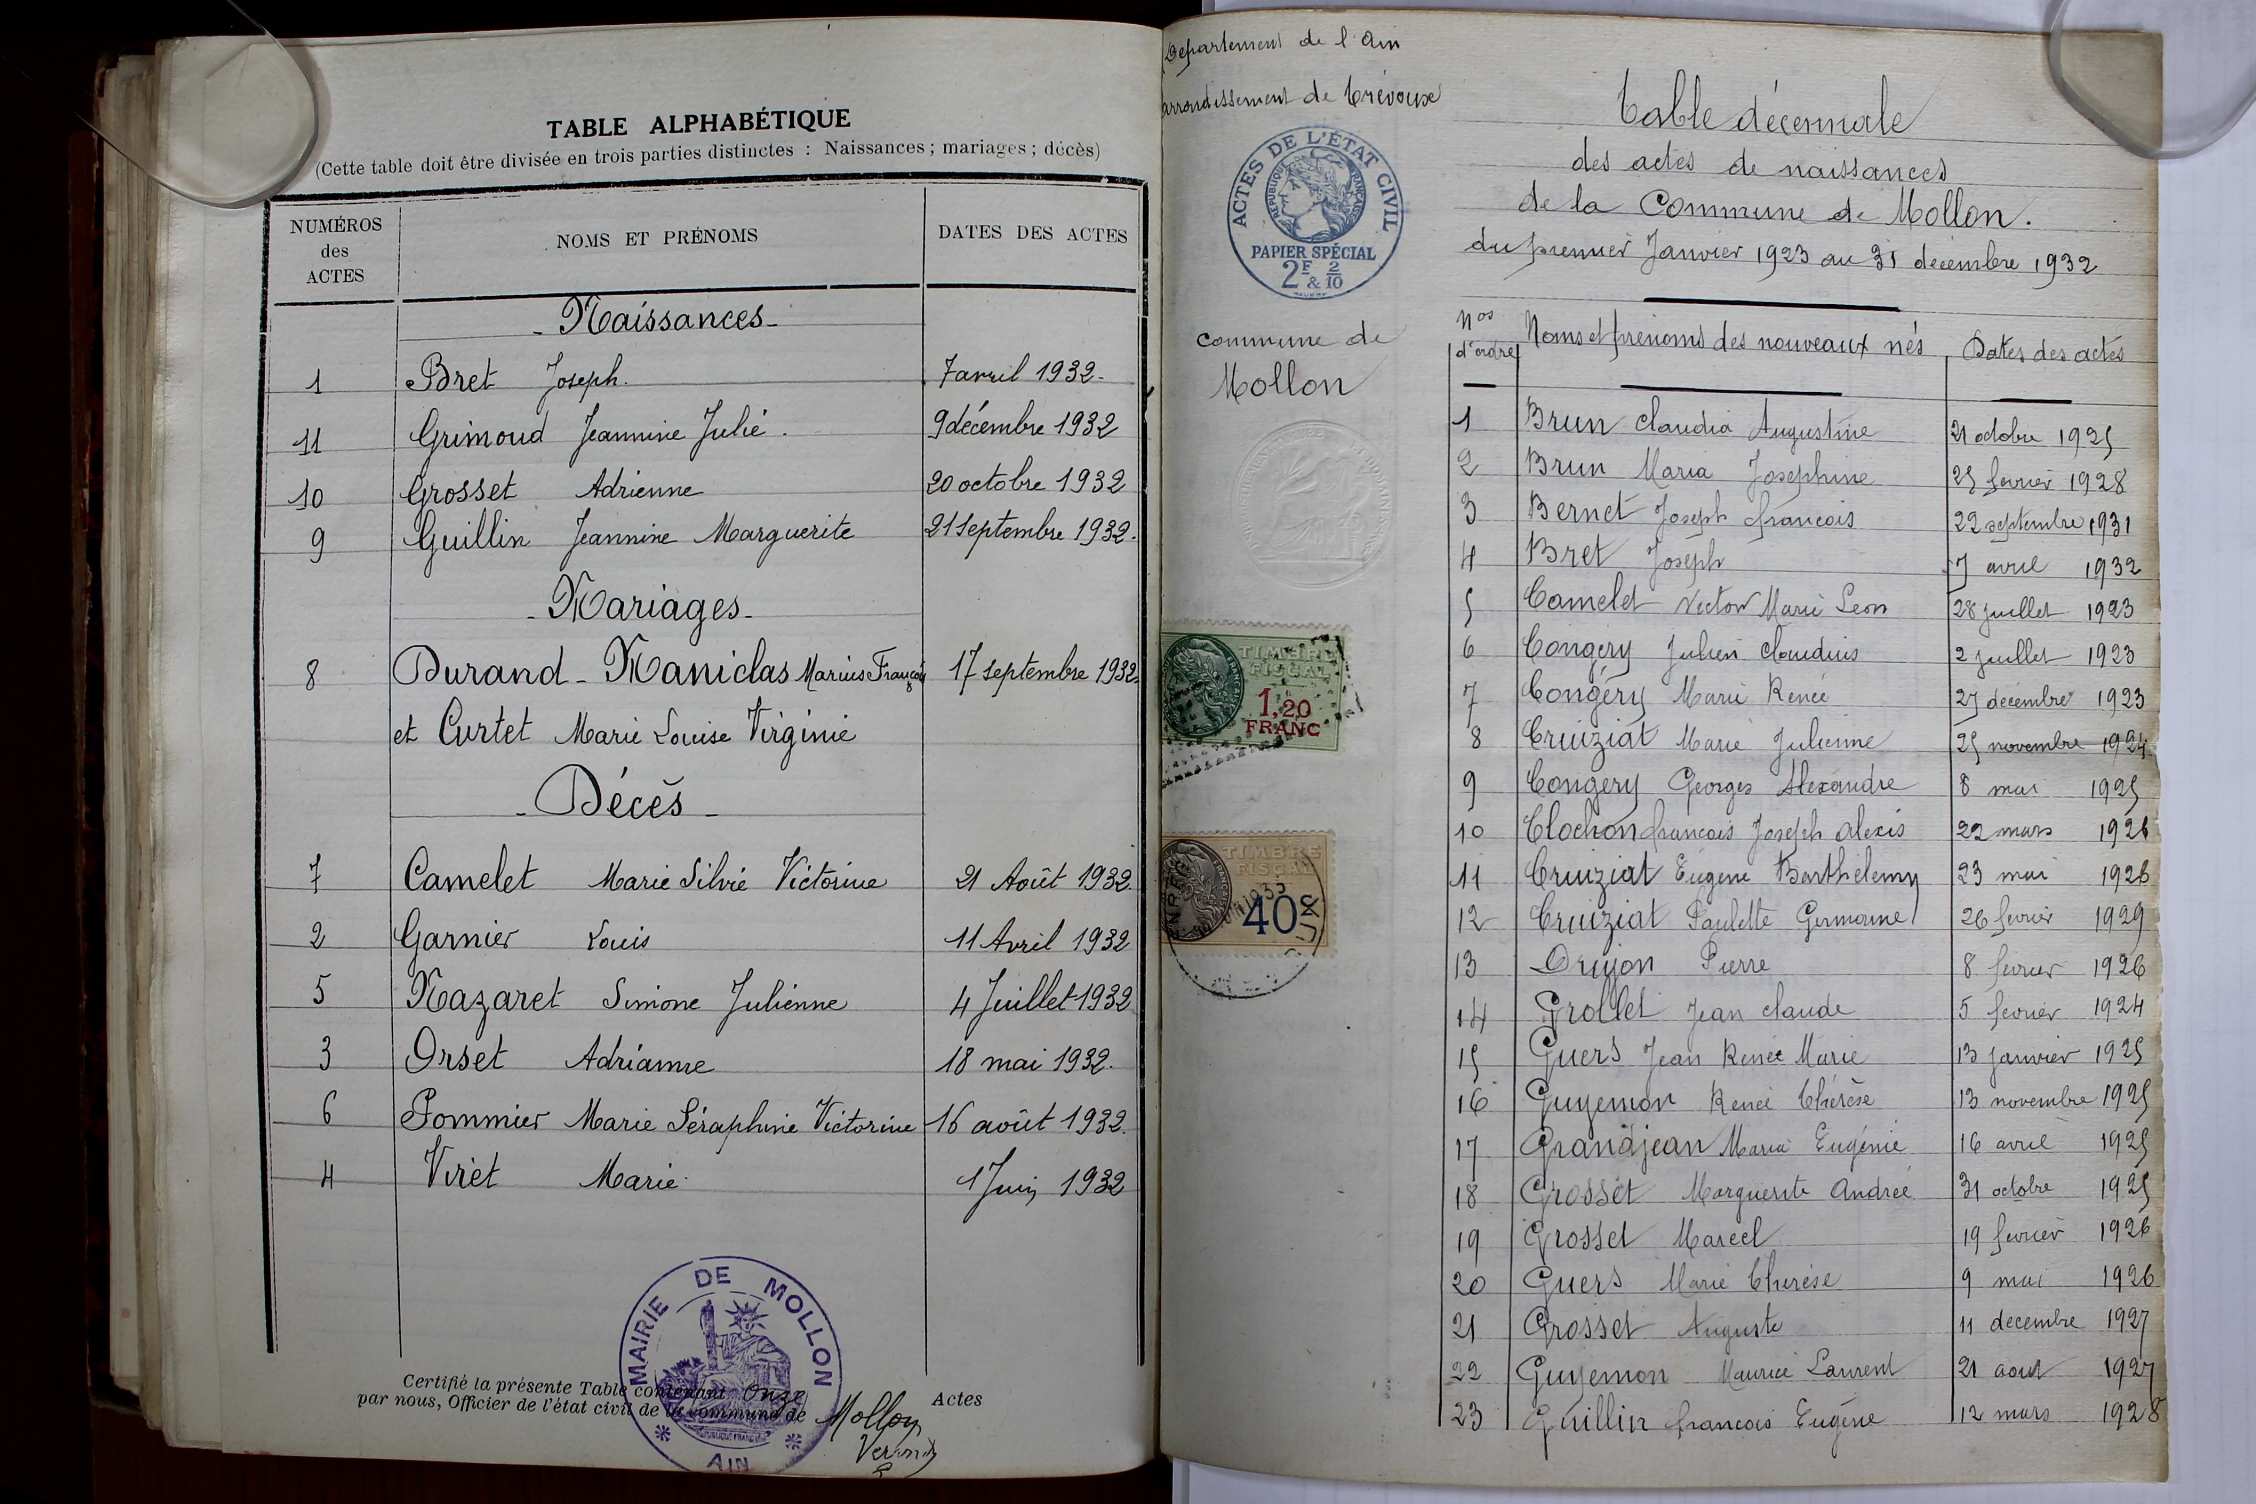 TABLE ALPHABÉTIQUE
(Cette table doit être divisée en trois parties distinctes : Naissances ; mariages ; décès)
NUMÉROS des ACTES NOMS ET PRÉNOMS DATES DES ACTES
- Naissances -
1 Bret Joseph. 7 avril 1932.
11 Grimoud Jeannine Julie. 9 décembre 1932
10 Grosset Adrienne 20 octobre 1932
9 Guillin Jeannine Marguerite 21 Septembre 1932.
- Mariages -
8 Durand - Maniclas Marius François 17 septembre 1932
et Curtet Marie Louise Virginie
- Décès -
7 Camelet Marie Silvie Victorine 21 Août 1932
2 Garnier Louis 11 Avril 1932
5 Nazaret Simone Julienne 4 Juillet 1932
3 Orset Adrianne 18 mai 1932.
6 Pommier Marie Séraphine Victorine 16 août 1932.
4 Viret Marie 1 Juin 1932
Certifié la présente Table contenant Onze Actes
par nous, Officier de l'état civil de la commune de Mollon
MAIRIE DE MOLLON
AIN
Département de l'Ain
arrondissement de Trévoux
ACTES DE L'ÉTAT CIVIL
RÉPUBLIQUE FRANÇAISE
PAPIER SPÉCIAL
2F & 2/10
Commune de
Mollon
TIMBRE
FISCAL
1,20
FRANC
TIMBRE
FISCAL
40
Table décennale
des actes de naissances
de la Commune de Mollon.
du premier Janvier 1923 au 31 décembre 1932
Nos d'ordre Noms et prénoms des nouveaux nés Dates des actes
1 Brun Claudia Augustine 21 octobre 1925
2 Brun Maria Josephine 25 fevrier 1928
3 Bernet Joseph francois 22 septembre 1931
4 Bret Joseph 7 avril 1932
5 Camelet Victor Marie Leon 28 juillet 1923
6 Congery Julien Claudius 2 juillet 1923
7 Congéry Marie Renée 27 decembre 1923
8 Cruiziat Marie Julienne 25 novembre 1924
9 Congery Georges Alexandre 8 mai 1925
10 Clochon francois Joseph alexis 22 mars 1926
11 Cruiziat Eugene Barthélemy 23 mai 1926
12 Cruiziat Paulette Germaine 26 fevrier 1929
13 Drujon Pierre 8 fevrier 1926
14 Grollet Jean claude 5 fevrier 1924
15 Guers Jean Renée Marie 13 janvier 1925
16 Guyemon Renée Thérèse 13 novembre 1925
17 Grandjean Maria Eugénie 16 avril 1925
18 Grosset Marguerite Andrée 31 octobre 1925
19 Grosset Marcel 19 fevrier 1926
20 Guers Marie Thérése 9 mai 1926
21 Grosset Auguste 11 decembre 1927
22 Guyemon Maurice Laurent 21 aout 1927
23 Guillin francois Eugéne 12 mars 1928